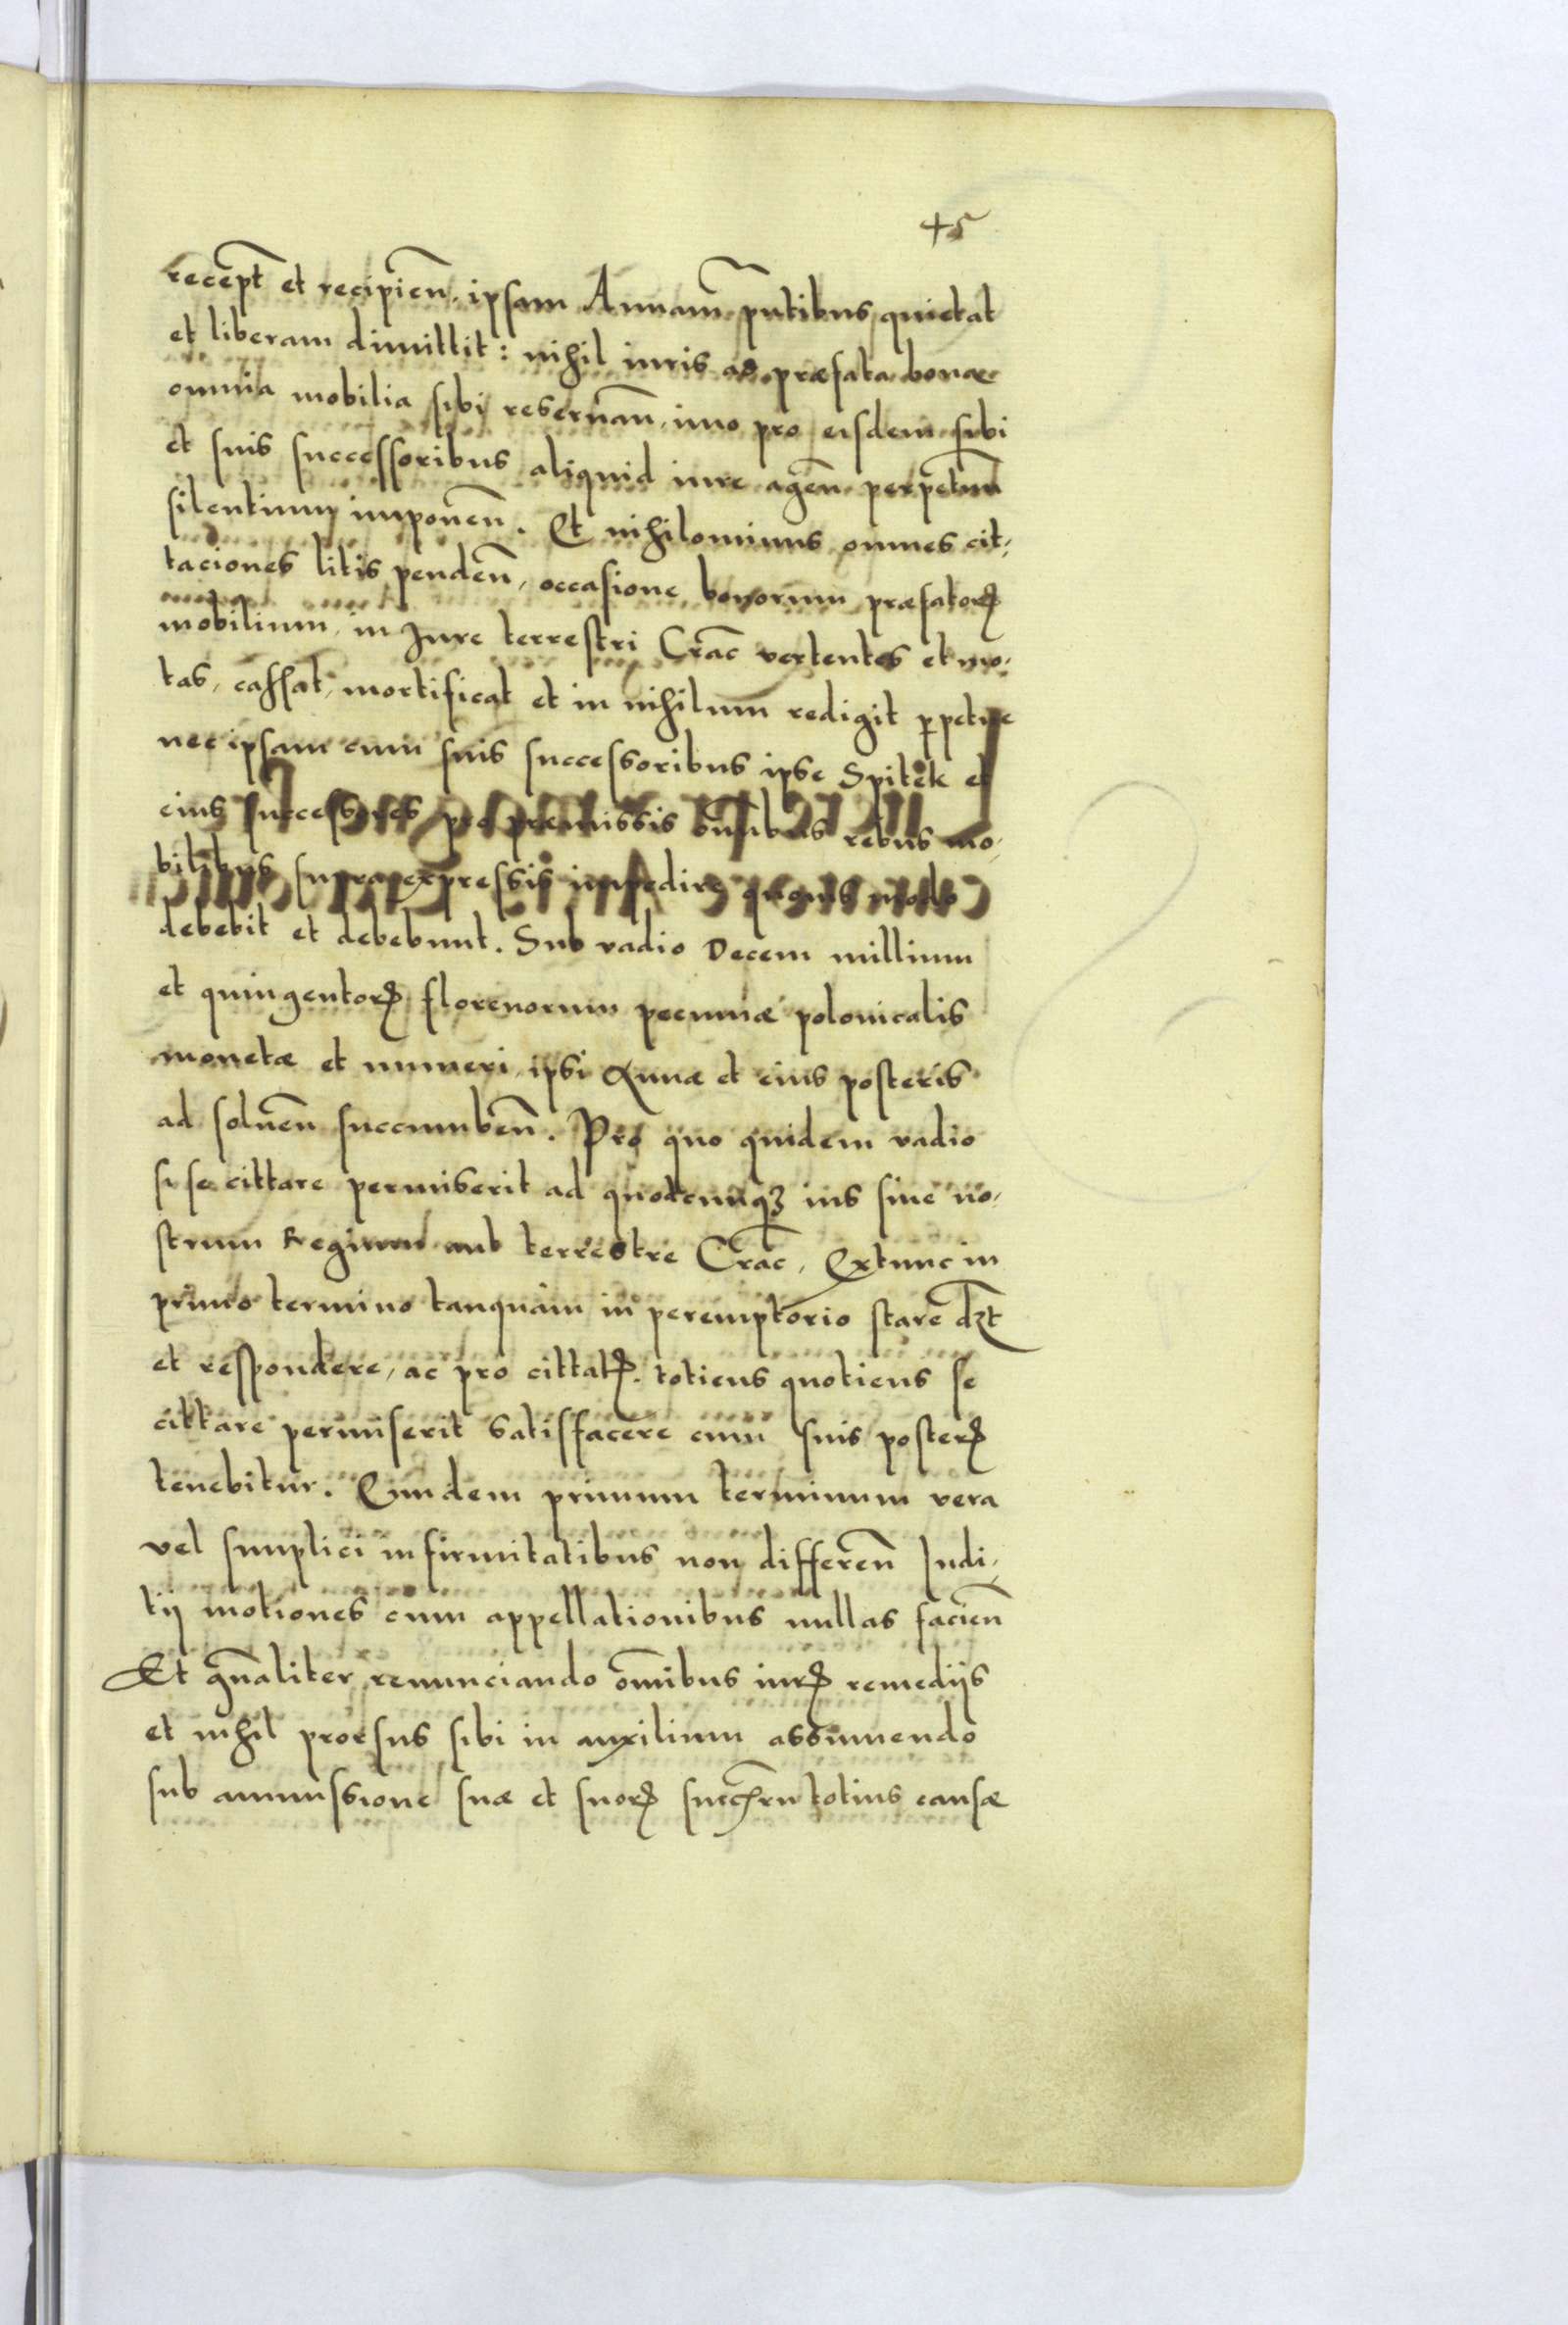 45
recept et recipien, ipsam Annam pntibus quietat
et liberam dimittit: nihil iuris ad præfata bona
omnia mobilia sibi reseruan, imo pro eisdem sibi
et suis successoribus aliquid iure agen perpetuum
silentium imponen. Et nihilominus omnes cit,
taciones litis penden, occasione bonorum præfator
mobilium, in Jure terrestri Crac vertentes et mo,
tas, cassat, mortificat et in nihilum redigit perpetue
nec ipsam cum suis successoribus ipse Spitek et
eius successores pro præmissis omnibus rebus mo,
bilibus supra expressis impedire quouis modo
debebit et debebunt. Sub vadio Decem millium
et quingentor florenorum pecuniæ polonicalis
monetæ et numeri, ipsi Annæ et eius posteris
ad soluen succumben. Pro quo quidem vadio
si se cittare permiserit ad quodcunqz ius siue no,
strum Regium aut terrestre Crac, Extunc in
primo termino tanquam in peremptorio stare dzt
et respondere, ac pro cittat. totiens quotiens se
cittare permiserit satisfacere cum suis poster
tenebitur. Eundem primum terminum vera
vel simplici infirmitatibus non differen Judi,
tij motiones cum appellationibus nullas facien
Et gnaliter renunciando omibus iur remedijs
et nihil prorsus sibi in auxilium assumendo
sub ammissione suæ et suor totius causæ